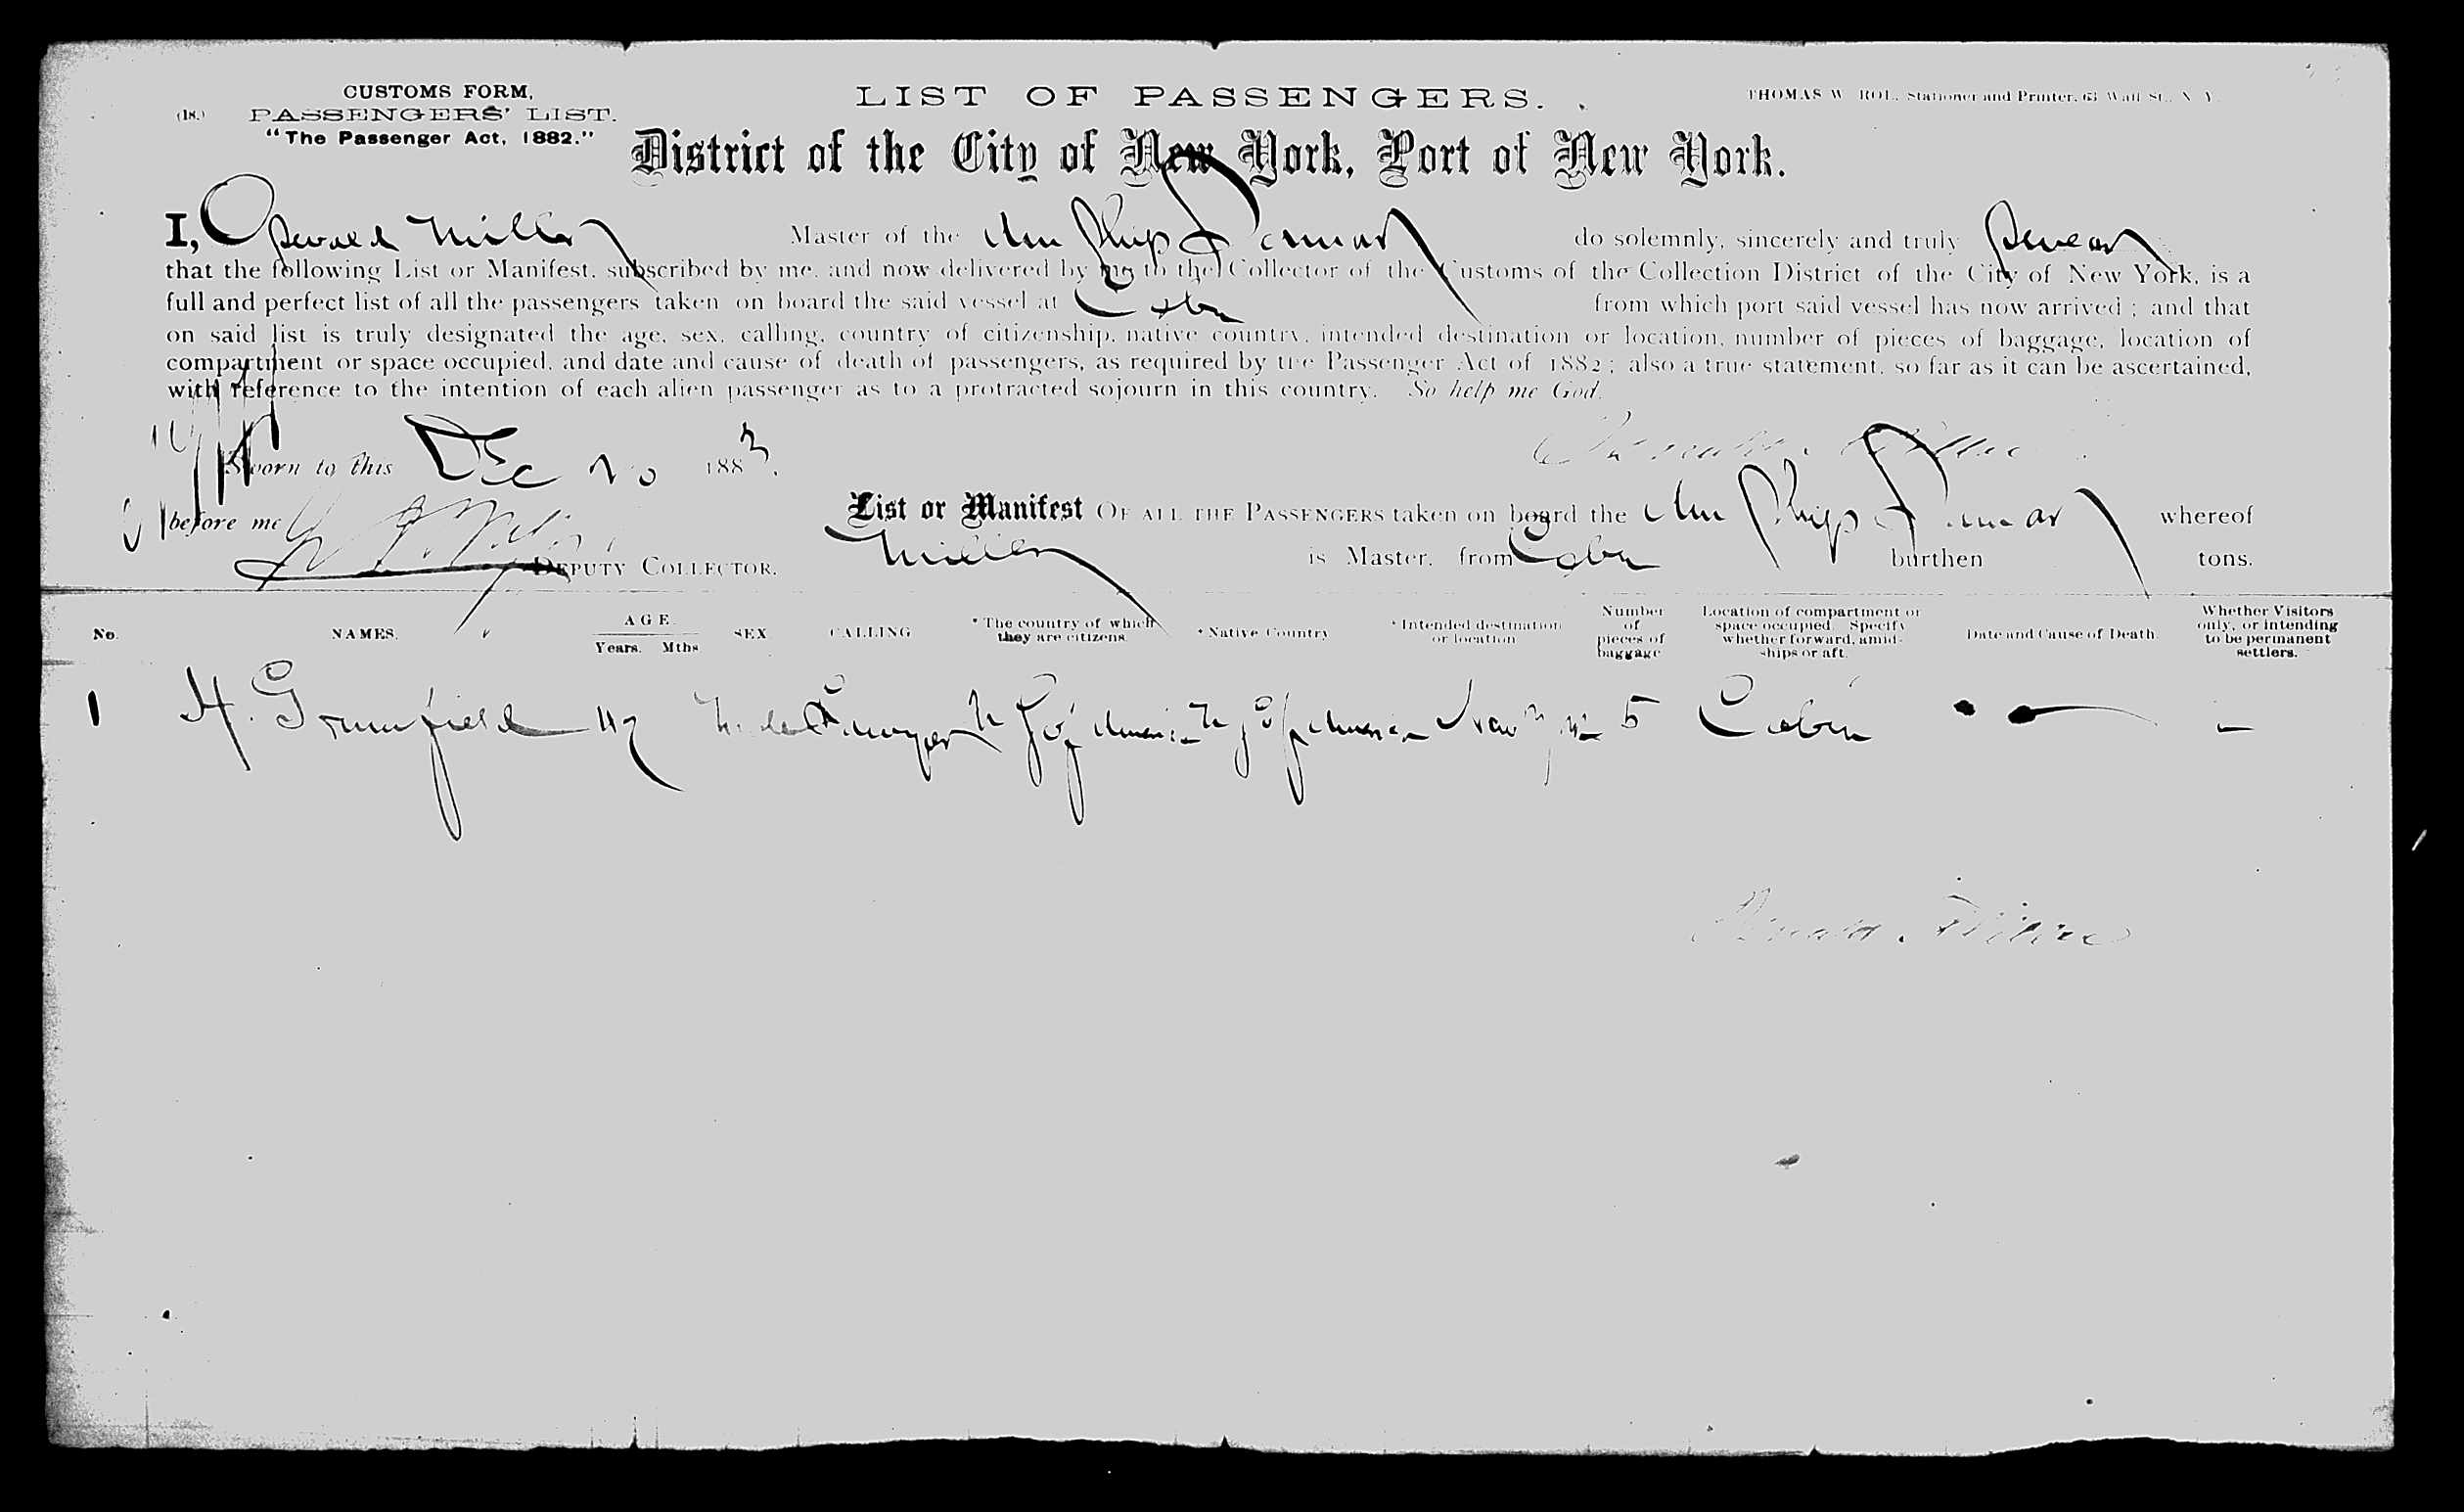 CUSTOMS FORM,
(18.) PASSENGERS' LIST.
"The Passenger Act, 1882."
LIST OF PASSENGERS.
THOMAS W. ROE, Stationer and Printer, 63 Wall St., N. Y.
District of the City of New York, Port of New York.
I, Oswald Miller Master of the Am Ship do solemnly, sincerely and truly swear
that the following List or Manifest, subscribed by me, and now delivered by me to the Collector of the Customs of the Collection District of the City of New York, is a
full and perfect list of all the passengers taken on board the said vessel at Cebu from which port said vessel has now arrived; and that
on said list is truly designated the age, sex, calling, country of citizenship, native country, intended destination or location, number of pieces of baggage, location of
compartment or space occupied, and date and cause of death of passengers, as required by the Passenger Act of 1882; also a true statement, so far as it can be ascertained,
with reference to the intention of each alien passenger as to a protracted sojourn in this country. So help me God.
Sworn to this Dec 20 1883.
before me
DEPUTY COLLECTOR.
List or Manifest OF ALL THE PASSENGERS taken on board the Am Ship whereof
Miller is Master, from Cebu burthen tons.
No. NAMES. AGE. Years. Mths. SEX. CALLING. * The country of which they are citizens. * Native Country * Intended destination or location Number of pieces of baggage Location of compartment or space occupied. Specify whether forward, amid-ships or aft. Date and Cause of Death. Whether Visitors only, or intending to be permanent settlers.
1 H. 42 Male U S of America U S of America New York 5 Cabin — —